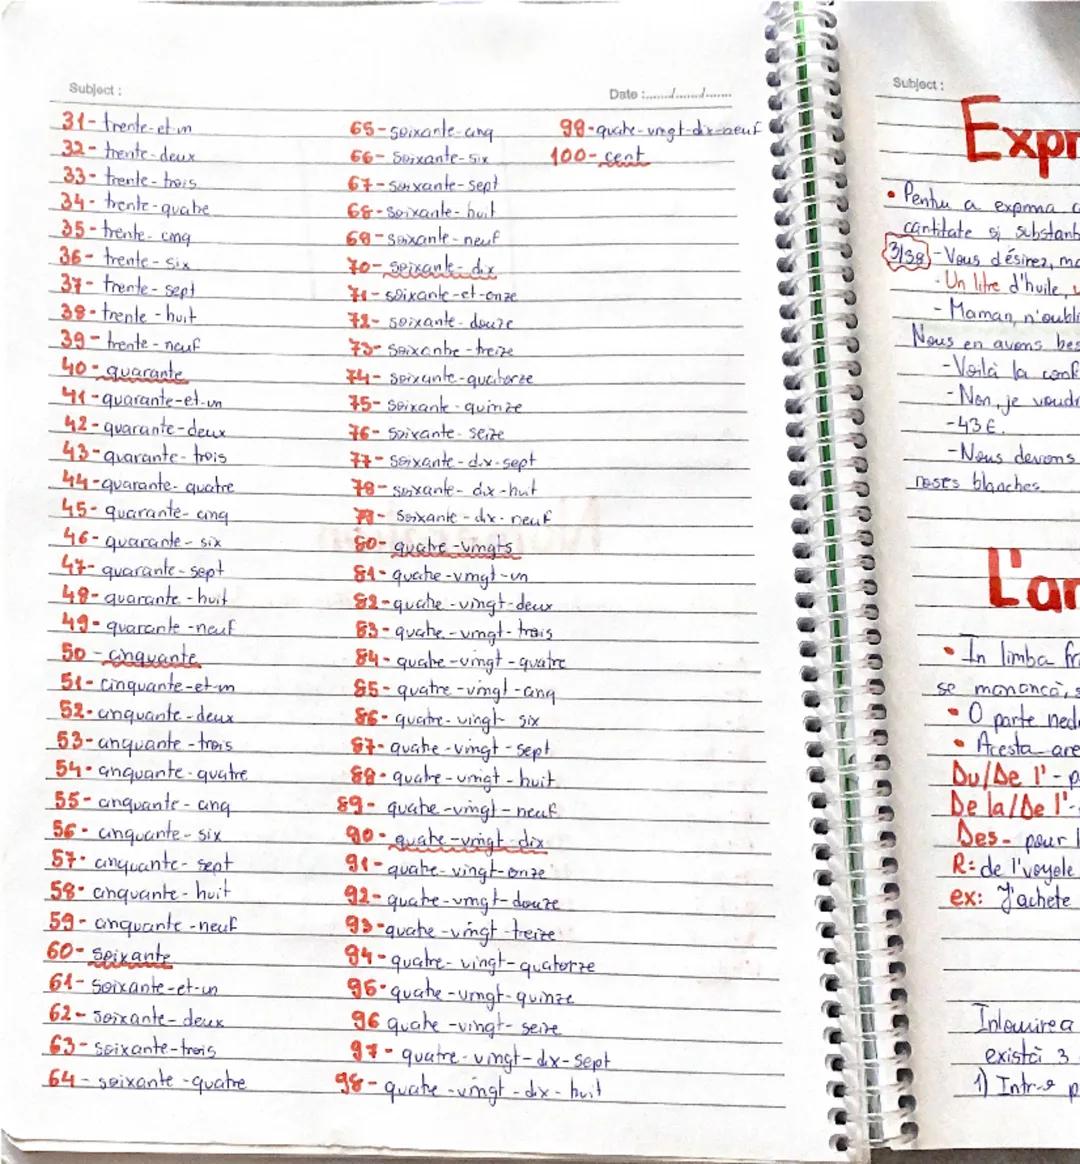 Subject :
Date :......./......./.......
31- trente-et-un
32- trente-deux
33- trente-trois
34- trente-quatre
35- trente-cinq
36- trente-six
37- trente-sept
38- trente-huit
39- trente-neuf
40- quarante
41- quarante-et-un
42- quarante-deux
43- quarante-trois
44- quarante-quatre
45- quarante-cinq
46- quarante-six
47- quarante-sept
48- quarante-huit
49- quarante-neuf
50- cinquante
51- cinquante-et-un
52- cinquante-deux
53- cinquante-trois
54- cinquante-quatre
55- cinquante-cinq
56- cinquante-six
57- cinquante-sept
58- cinquante-huit
59- cinquante-neuf
60- soixante
61- soixante-et-un
62- soixante-deux
63- soixante-trois
64- soixante-quatre
65- soixante-cinq
66- soixante-six
67- soixante-sept
68- soixante-huit
69- soixante-neuf
70- soixante-dix
71- soixante-et-onze
72- soixante-douze
73- soixante-treize
74- soixante-quatorze
75- soixante-quinze
76- soixante-seize
77- soixante-dix-sept
78- soixante-dix-huit
79- soixante-dix-neuf
80- quatre-vingts
81- quatre-vingt-un
82- quatre-vingt-deux
83- quatre-vingt-trois
84- quatre-vingt-quatre
85- quatre-vingt-cinq
86- quatre-vingt six
87- quatre-vingt-sept
88- quatre-vingt-huit
89- quatre-vingt-neuf
90- quatre-vingt-dix
91- quatre-vingt-onze
92- quatre-vingt-douze
93- quatre-vingt-treize
94- quatre-vingt-quatorze
95- quatre-vingt-quinze
96 quatre-vingt-seize
97- quatre-vingt-dix-sept
98- quatre-vingt-dix-huit
99- quatre-vingt-dix-neuf
100- cent
Subject :
Expr
• Pentru a exprima c
cantitate și substant
3/38 - Vous désirez, ma
- Un litre d'huile,
- Maman, n'oubli
Nous en avons bes
- Voilà la conf
- Non, je voudr
- 43 €.
- Nous devons
roses blanches.
L'ar
• In limba fr
se mănâncă, s
• O parte ned
• Acesta are
Du/De l' - p
De la/De l' -
Des - pour l
R: de l'voyele
ex: J'achete
Inlouirea
există 3
1) Intr-o p